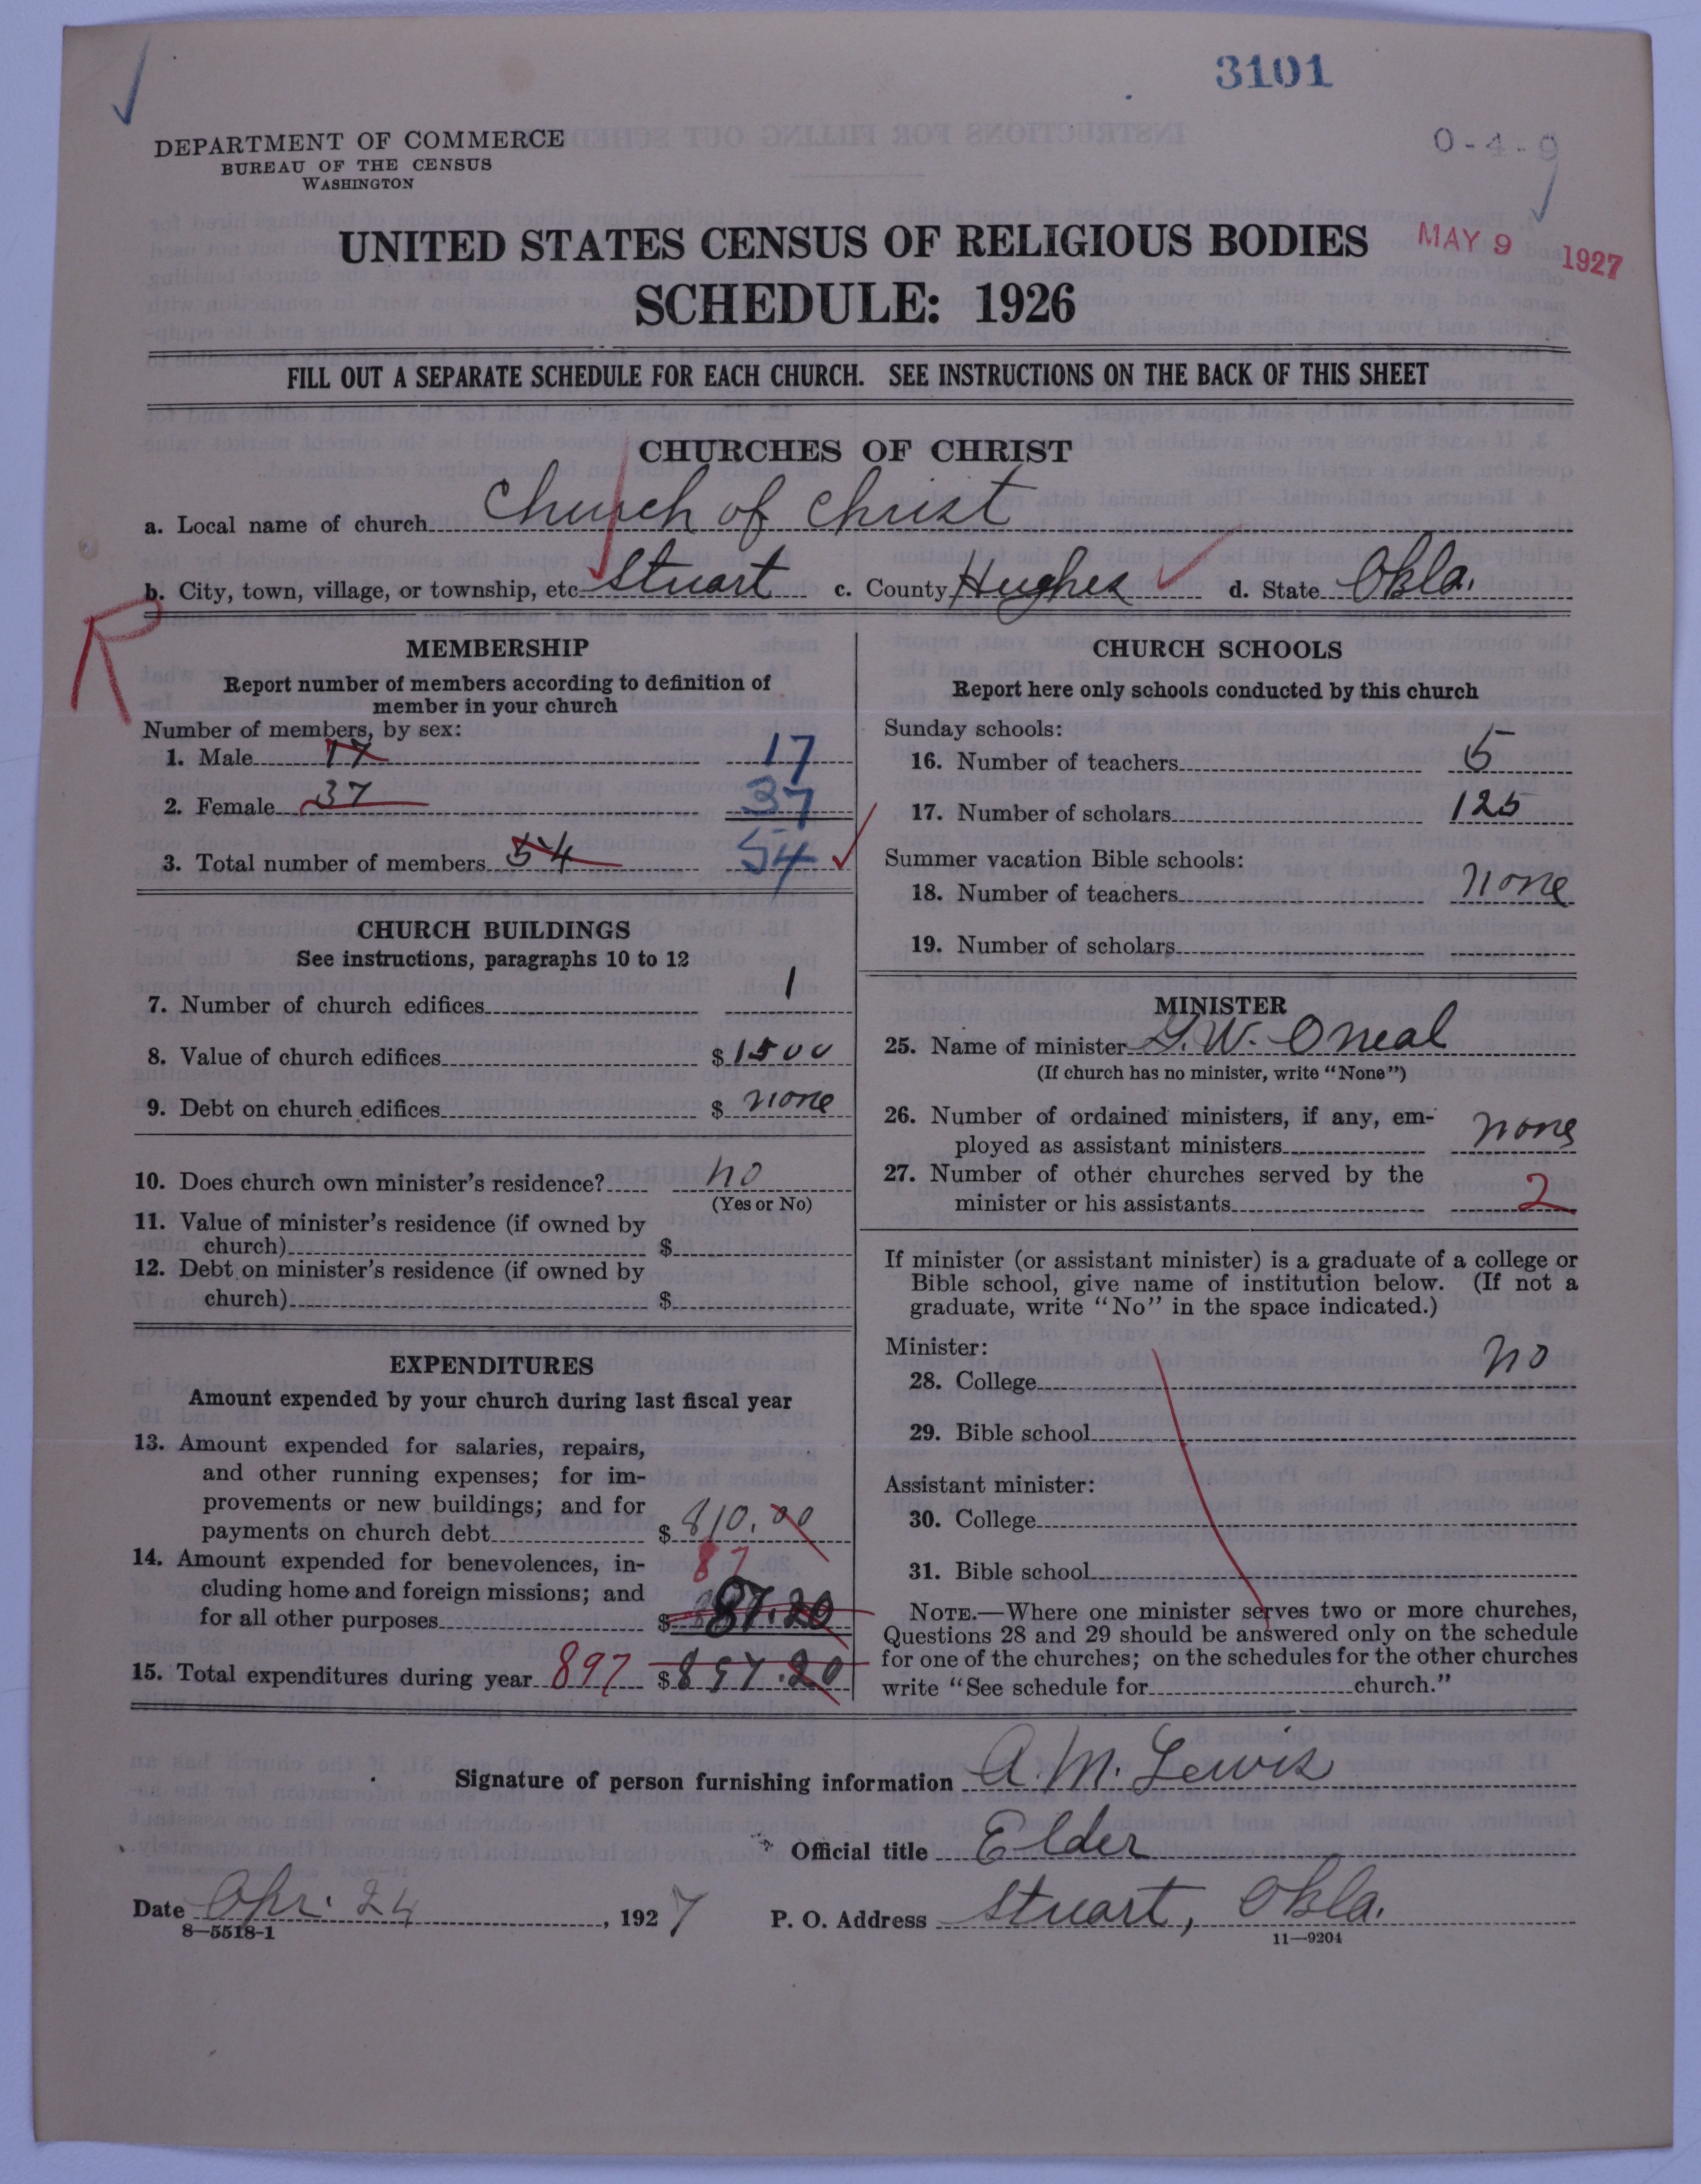 3101
DEPARTMENT OF COMMERCE
BUREAU OF THE CENSUS
WASHINGTON
0-4-9
UNITED STATES CENSUS OF RELIGIOUS BODIES
MAY 9 1927
SCHEDULE: 1926
FILL OUT A SEPARATE SCHEDULE FOR EACH CHURCH. SEE INSTRUCTIONS ON THE BACK OF THIS SHEET
CHURCHES OF CHRIST
a. Local name of church Church of Christ
b. City, town, village, or township, etc Stuart c. County Hughes d. State Okla.
R
MEMBERSHIP
Report number of members according to definition of
member in your church
Number of members, by sex:
1. Male 17 17
2. Female 37 37
3. Total number of members 54 54
CHURCH BUILDINGS
See instructions, paragraphs 10 to 12
7. Number of church edifices 1
8. Value of church edifices $ 1500
9. Debt on church edifices $ none
10. Does church own minister's residence? no
(Yes or No)
11. Value of minister's residence (if owned by
church) $
12. Debt on minister's residence (if owned by
church) $
EXPENDITURES
Amount expended by your church during last fiscal year
13. Amount expended for salaries, repairs,
and other running expenses; for im-
provements or new buildings; and for
payments on church debt $ 810.00
14. Amount expended for benevolences, in-
87
cluding home and foreign missions; and
for all other purposes $ 87.20
15. Total expenditures during year 897 $ 897.20
CHURCH SCHOOLS
Report here only schools conducted by this church
Sunday schools:
16. Number of teachers 5
17. Number of scholars 125
Summer vacation Bible schools:
18. Number of teachers none
19. Number of scholars
MINISTER
25. Name of minister G. W. Oneal
(If church has no minister, write "None")
26. Number of ordained ministers, if any, em-
ployed as assistant ministers none
27. Number of other churches served by the
minister or his assistants 2
If minister (or assistant minister) is a graduate of a college or
Bible school, give name of institution below. (If not a
graduate, write "No" in the space indicated.)
Minister:
28. College no
29. Bible school
Assistant minister:
30. College
31. Bible school
NOTE.—Where one minister serves two or more churches,
Questions 28 and 29 should be answered only on the schedule
for one of the churches; on the schedules for the other churches
write "See schedule for church."
Signature of person furnishing information A. M. Lewis
Official title Elder
Date Apr. 24, 1927 P. O. Address Stuart, Okla.
8—5518-1
11—9204